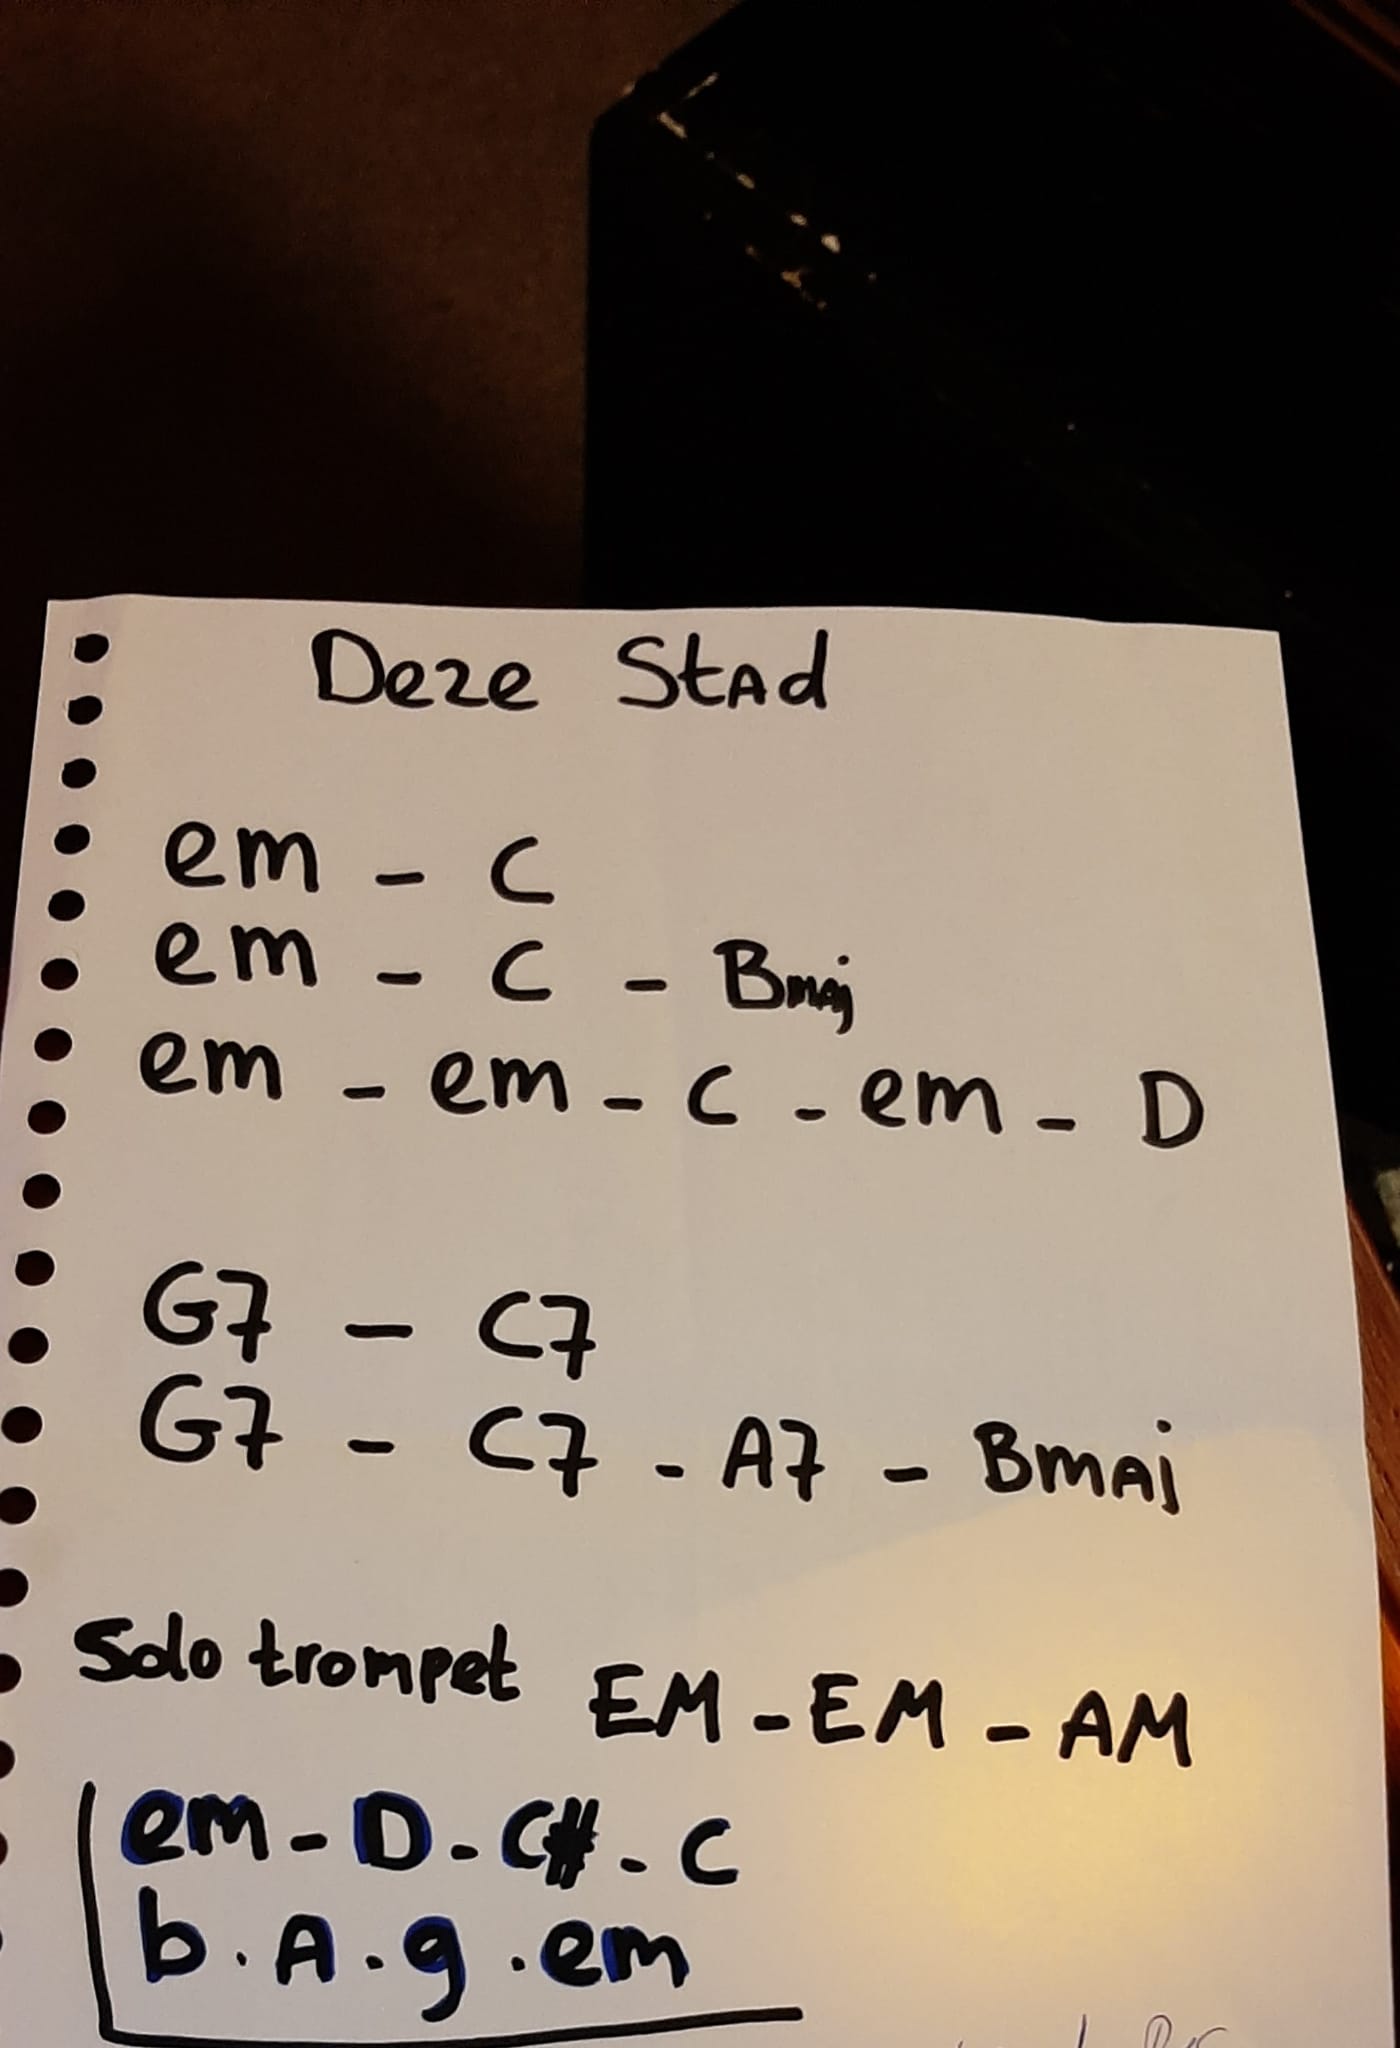 Deze Stad
em - C
em - C - Bmaj
em - em - C - em - D
G7 - C7
G7 - C7 - A7 - BmAj
Solo trompet EM - EM - AM
em - D - C# - C
b . A . g . em